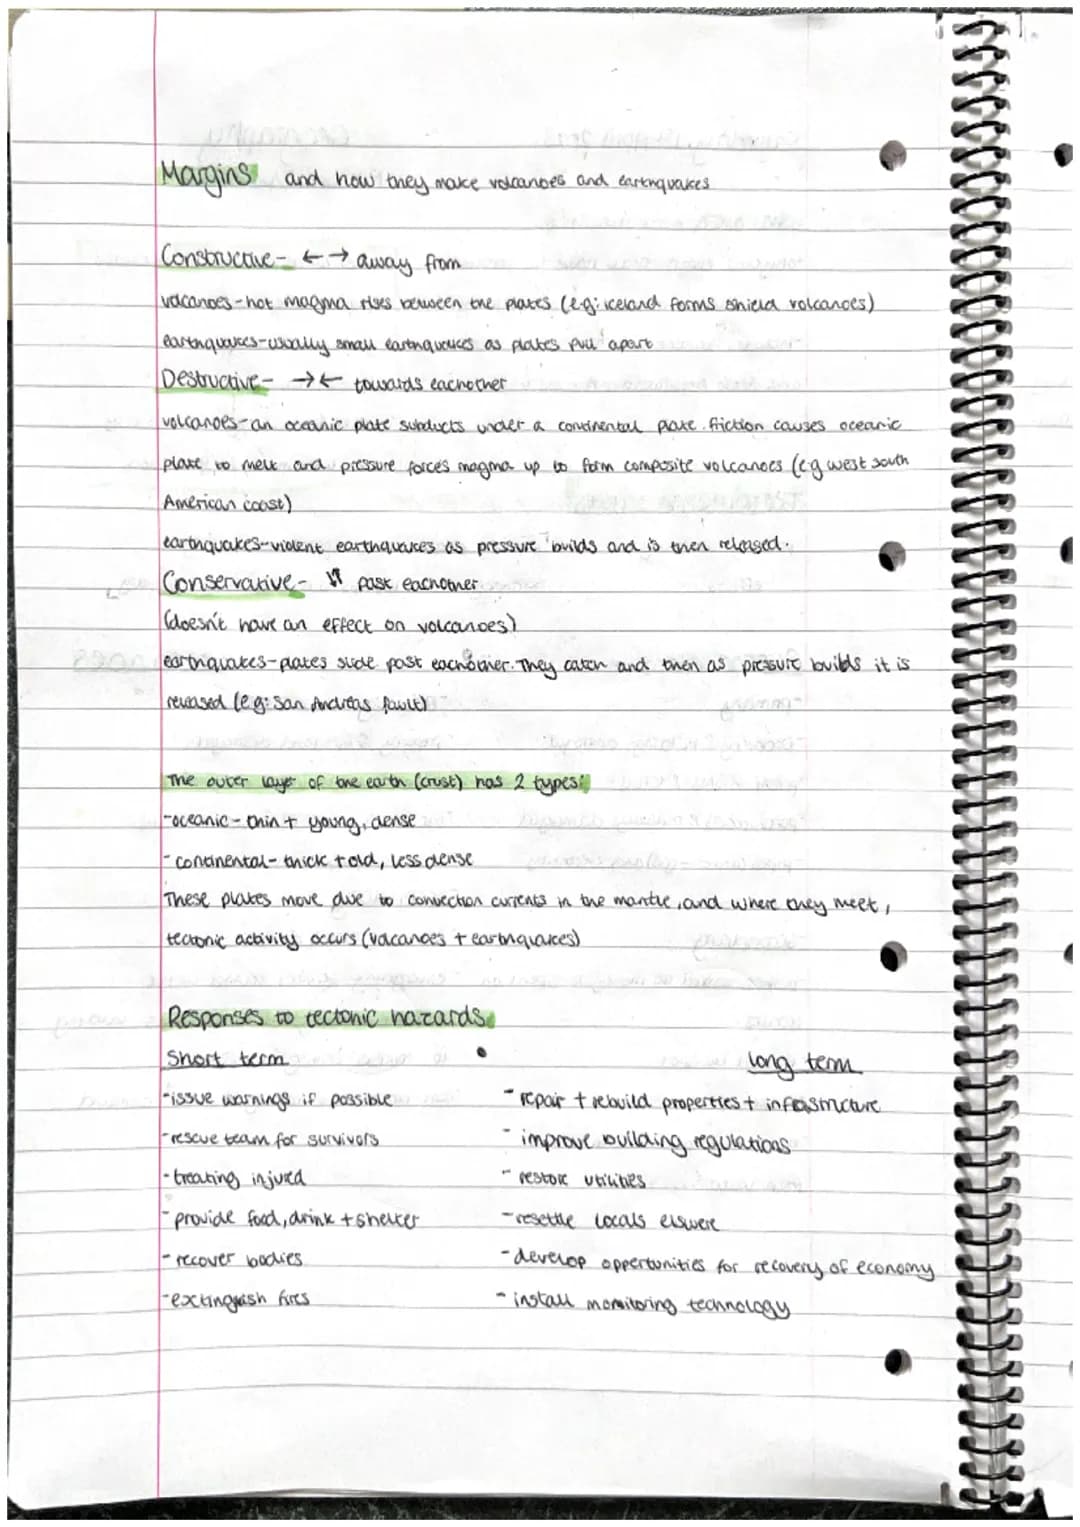 Margins and how they make volcanoes and earthquakes
Constructive- ← → away from
volcanoes-hot magma rises between the plates (e.g: iceland forms shield volcanoes)
earthquakes-usually small earthquakes as plates pull apart
Destructive- →← towards eachother
volcanoes-an oceanic plate subducts under a continental plate. friction causes oceanic
plate to melt and pressure forces magma up to form composite volcanoes (e.g west south
American coast)
earthquakes-violent earthquakes as pressure builds and is then released.
Conservative- ↓↑ past eachother
(doesn't have an effect on volcanoes)
earthquakes-plates slide past eachother. They catch and then as pressure builds it is
released (e.g: San Andreas fault)
The outer layer of the earth (crust) has 2 types:
-oceanic- thin + young, dense
- continental- thick + old, less dense
These plates move due to convection currents in the mantle, and where they meet,
tectonic activity occurs (volcanoes + earthquakes)
Responses to tectonic hazards
Short term
long term
-issue warnings if possible
- repair + rebuild properties + infrastructure
-rescue team for survivors
- improve building regulations
-treating injured
- restore utilities
- provide food, drink + shelter
-resettle locals elswere
- recover bodies
- develop oppertunities for recovery of economy
-extinguish fires
- install monitoring technology